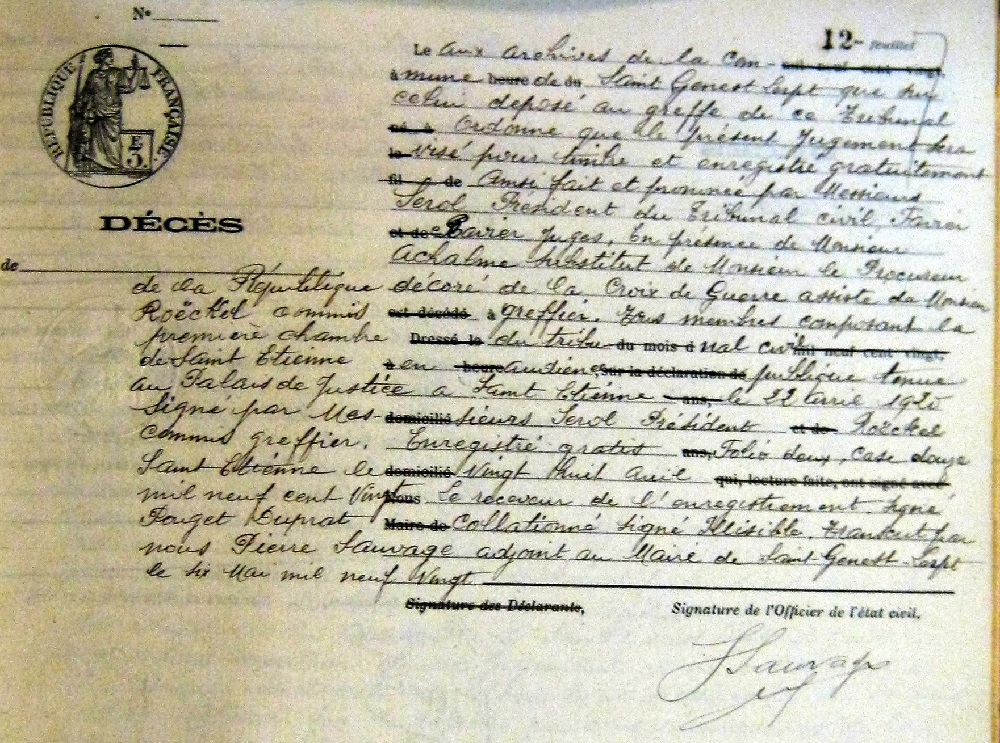 Nº
12- feuillet
RÉPUBLIQUE FRANÇAISE
E
3.
DÉCÈS
de
Le aux archives de la com-
à mune heure de du Saint Genest Lerpt que sur
celui déposé au greffe de ce Tribunal
né à Ordonne que le présent Jugement sera
le visé pour timbre et enregistré gratuitement
fil de Ainsi fait et prononcé par Messieurs
Serol Président du Tribunal civil
et de Juges, En présence de Monsieur
Achalme Substitut de Monsieur le Procureur
de la République décoré de la Croix de Guerre assisté de Monsieur
Roëckel commis est décédé à greffier. Tous membres composant la
première chambre Dressé le du tribu- du mois d nal civil mil neuf cent vingt,
de Saint Etienne à en heure audience sur la déclaration de publique tenue
au Palais de Justice à Saint Etienne ans, le 22 avril 1920
Signé par Mes- domicilié sieurs Serol Président et de Roëckel
commis greffier. Enregistré gratis ans, Folio deux, Case douze
Saint Etienne le domicilié vingt huit avril qui, lecture faite, ont signé avec
mil neuf cent Vingt Nous Le receveur de l'enregistrement signé
Pouget Duprat Maire de Collationné Signé Illisible. Transcrit par
nous Pierre Sauvage adjoint au Maire de Saint Genest-Lerpt
le six Mai mil neuf Vingt
Signature des Déclarants,
Signature de l'Officier de l'état civil.
Sauvage